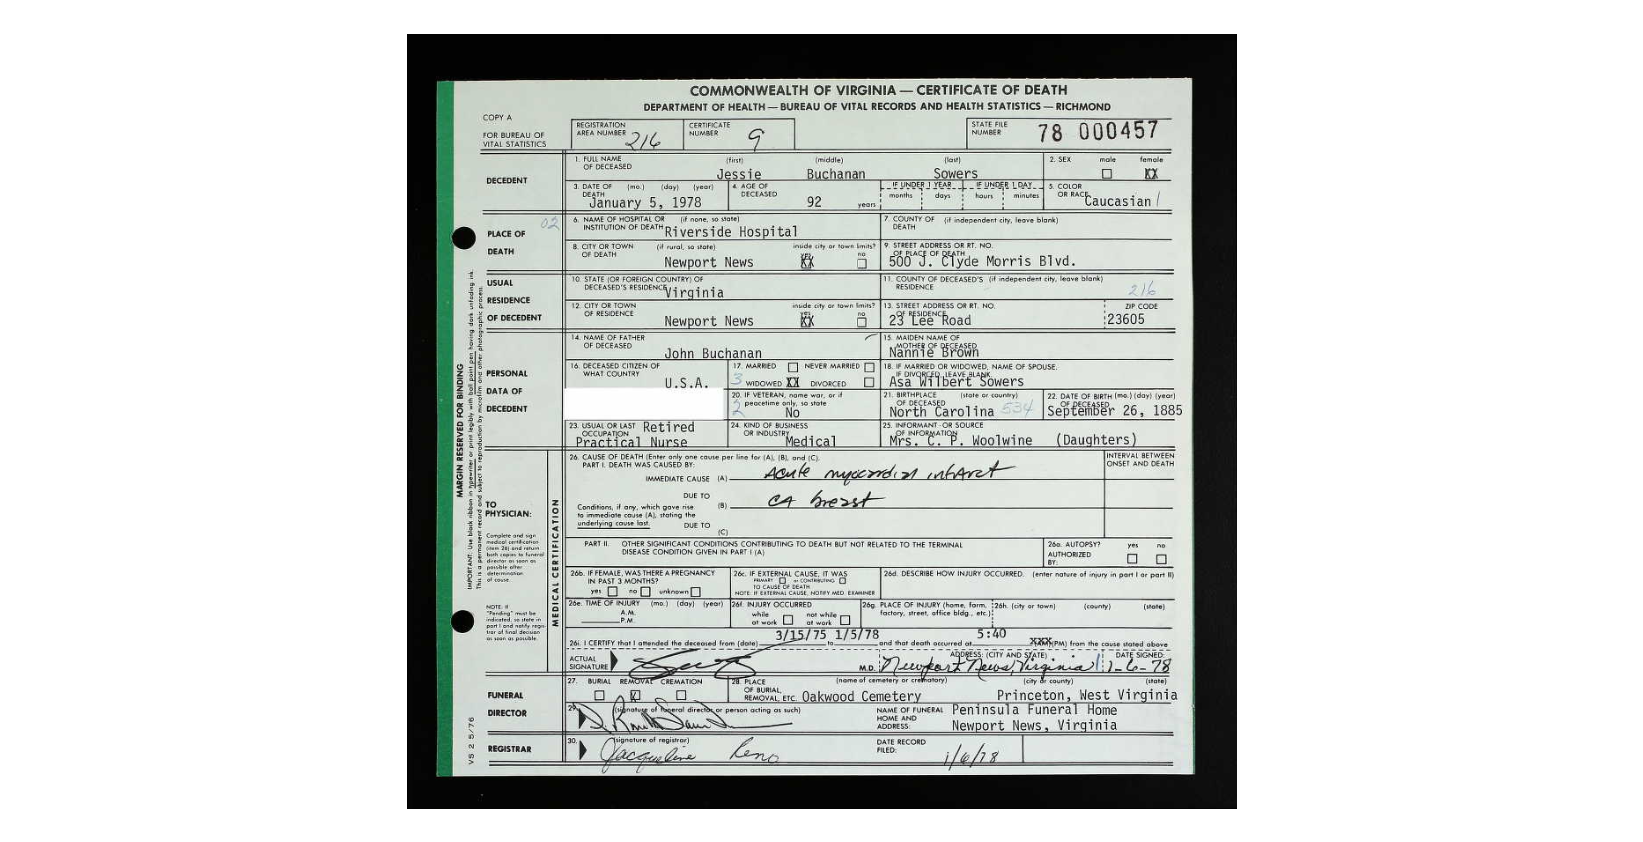 COMMONWEALTH OF VIRGINIA — CERTIFICATE OF DEATH
DEPARTMENT OF HEALTH — BUREAU OF VITAL RECORDS AND HEALTH STATISTICS — RICHMOND
COPY A
FOR BUREAU OF VITAL STATISTICS
REGISTRATION AREA NUMBER 216
CERTIFICATE NUMBER 9
STATE FILE NUMBER 78 000457
DECEDENT
1. FULL NAME OF DECEASED (first) (middle) (last)
Jessie Buchanan Sowers
2. SEX male female XX
3. DATE OF DEATH (mo.) (day) (year)
January 5, 1978
4. AGE OF DECEASED 92 years
IF UNDER 1 YEAR months days IF UNDER 1 DAY hours minutes
5. COLOR OR RACE Caucasian /
PLACE OF DEATH
02
6. NAME OF HOSPITAL OR INSTITUTION OF DEATH (if none, so state)
Riverside Hospital
7. COUNTY OF DEATH (if independent city, leave blank)
8. CITY OR TOWN OF DEATH (if rural, so state) inside city or town limits? yes XX no
Newport News
9. STREET ADDRESS OR RT. NO. OF PLACE OF DEATH
500 J. Clyde Morris Blvd.
USUAL RESIDENCE OF DECEDENT
10. STATE (OR FOREIGN COUNTRY) OF DECEASED'S RESIDENCE
Virginia
11. COUNTY OF DECEASED'S RESIDENCE (if independent city, leave blank)
216
12. CITY OR TOWN OF RESIDENCE inside city or town limits? yes XX no
Newport News
13. STREET ADDRESS OR RT. NO. OF RESIDENCE ZIP CODE
23 Lee Road 23605
PERSONAL DATA OF DECEDENT
14. NAME OF FATHER OF DECEASED
John Buchanan
15. MAIDEN NAME OF MOTHER OF DECEASED
Nannie Brown
16. DECEASED CITIZEN OF WHAT COUNTRY
U.S.A.
17. MARRIED NEVER MARRIED
3 WIDOWED XX DIVORCED
18. IF MARRIED OR WIDOWED, NAME OF SPOUSE. IF DIVORCED, LEAVE BLANK.
Asa Wilbert Sowers
20. IF VETERAN, name war, or if peacetime only, so state
2 No
21. BIRTHPLACE OF DECEASED (state or country)
North Carolina 534
22. DATE OF BIRTH (mo.) (day) (year) OF DECEASED
September 26, 1885
23. USUAL OR LAST OCCUPATION Retired
Practical Nurse
24. KIND OF BUSINESS OR INDUSTRY
Medical
25. INFORMANT OR SOURCE OF INFORMATION
Mrs. C. P. Woolwine (Daughters)
TO PHYSICIAN:
Complete and sign medical certification (item 26) and return both copies to funeral director as soon as possible after determination of cause.
NOTE: If "Pending" must be indicated, so state in part I and notify registrar of final decision as soon as possible.
MEDICAL CERTIFICATION
26. CAUSE OF DEATH (Enter only one cause per line for (A), (B), and (C).
PART I. DEATH WAS CAUSED BY:
INTERVAL BETWEEN ONSET AND DEATH
IMMEDIATE CAUSE (A) Acute myocardial infarct
DUE TO
(B) CA breast
Conditions, if any, which gave rise to immediate cause (A), stating the underlying cause last.
DUE TO
(C)
PART II. OTHER SIGNIFICANT CONDITIONS CONTRIBUTING TO DEATH BUT NOT RELATED TO THE TERMINAL DISEASE CONDITION GIVEN IN PART I (A)
26a. AUTOPSY? yes no
AUTHORIZED BY:
26b. IF FEMALE, WAS THERE A PREGNANCY IN PAST 3 MONTHS?
yes no unknown
26c. IF EXTERNAL CAUSE, IT WAS
PRIMARY or CONTRIBUTING
TO CAUSE OF DEATH
NOTE: IF EXTERNAL CAUSE, NOTIFY MED. EXAMINER
26d. DESCRIBE HOW INJURY OCCURRED. (enter nature of injury in part I or part II)
26e. TIME OF INJURY (mo.) (day) (year)
A.M.
P.M.
26f. INJURY OCCURRED
while at work not while at work
26g. PLACE OF INJURY (home, farm, factory, street, office bldg., etc.)
26h. (city or town) (county) (state)
26i. I CERTIFY that I attended the deceased from (date) 3/15/75 to 1/5/78 and that death occurred at 5:40 XXX (PM) from the cause stated above
ACTUAL SIGNATURE
M.D.
ADDRESS: (CITY AND STATE)
Newport News, Virginia
DATE SIGNED:
1-6-78
FUNERAL DIRECTOR
27. BURIAL REMOVAL CREMATION
X
28. PLACE OF BURIAL, REMOVAL, ETC. (name of cemetery or crematory) (city or county) (state)
Oakwood Cemetery Princeton, West Virginia
29. (signature of funeral director or person acting as such)
NAME OF FUNERAL HOME AND ADDRESS:
Peninsula Funeral Home
Newport News, Virginia
REGISTRAR
30. (signature of registrar)
Jacqueline Reno
DATE RECORD FILED:
1/6/78
MARGIN RESERVED FOR BINDING
IMPORTANT: Use black ribbon in typewriter or print legibly with ball point pen having dark unfading ink.
This is a permanent record and subject to reproduction by microfilm and other photographic process.
VS 2 5/76